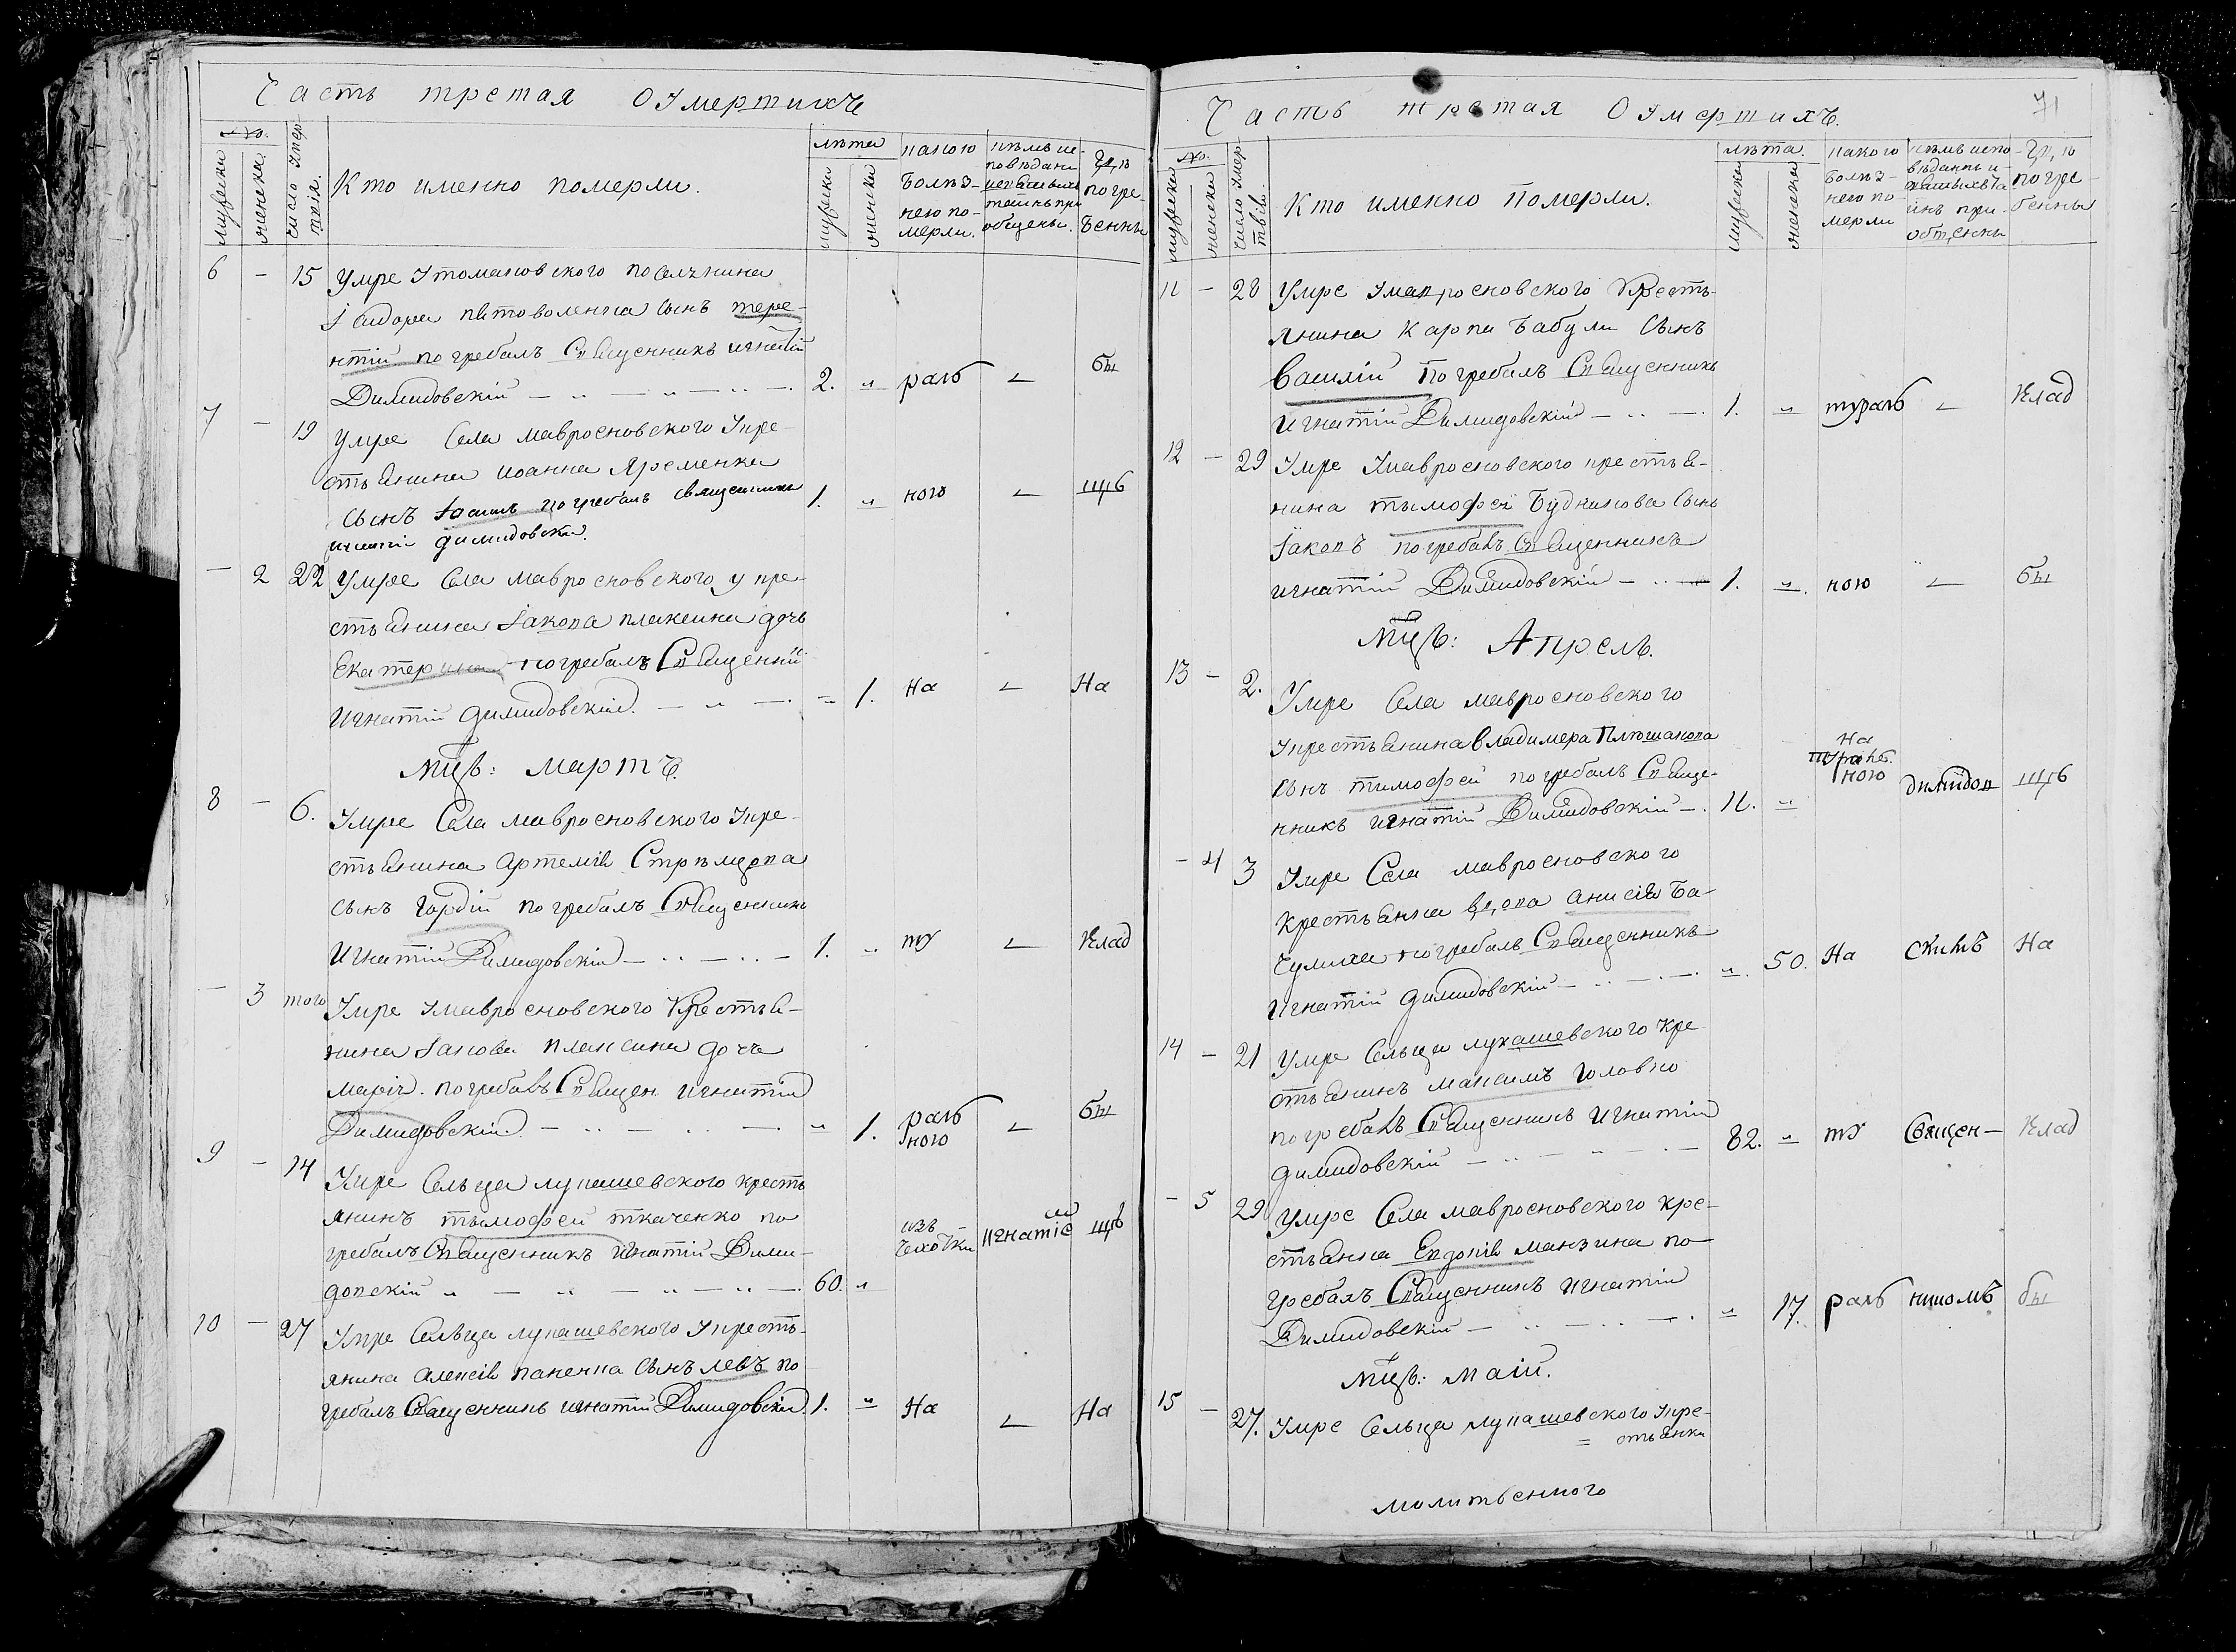 Часть третая О Умертшихъ
№.
мужеска
женска
число умер
твія.
Кто именно померли.
лѣта
мужеска
женска
какою
болѣз-
нею по-
мерли.
кѣмъ ис
повѣдани
и
таинъ при
общены.
Гдѣ
погре-
бенны
6 — 15 Умре Утомаковского поселянина
сынъ тере-
нтій погребалъ Священникъ игнатій
Димидовскій — „ — „ — „ — . 2. „ раль — бы
7 — 19 умре Села мавросновского Укре-
стьянина иоанна Яременка
сынъ погребалъ священникъ 1. „ ного — щѣ
игнатій димидовскій.
— 2 22 Умре Села мавросновского у кре-
стьянина Іакова плаксина дочь
Екатерина погребалъ Священникъ
Игнатій димидовскій. — „ — . „ 1. На — На
Мцъ: мартъ.
8 — 6. Умре Села мавросновского Укре-
стьянина артемія Стрѣлцова
сынъ гордій погребалъ Священникъ
Игнатій Димидовскій — „ — „ — 1. „ ту — Клад
— 3 того Умре Умавросновского Крестья-
нина Іакова плаксина дочь
марія. погребалъ Священ игнатій
Димидовскій. — „ — „ — . „ 1. раль — бы
ного
9 — 14 Умре Сельца лукашевского кресть
янинъ тымофей ткаченко по
гребалъ Священникъ игнатій Дими- изъ чахотки игнатіе щѣ
довскій „ — „ — „ — „ — . 60. „
10 — 27 Умре Сельца лукашевского Укресть-
янина алексія паненка сынъ левъ по
гребалъ Священникъ игнатій Димидовскій. 1. „ На — На
71
Часть третая О Умертшихъ.
№.
мужеска
женска
число умер
твія.
Кто именно померли.
лѣта.
мужеска
женска
какого
болѣз-
нею по-
мерли
кѣмъ испо-
вѣданны и
та
инъ при-
общенны
Гдѣ
погре-
бенны
11 — 28 Умре Умавросновского Кресть-
янина Карпа бабули сынъ
василій погребалъ Священникъ
игнатій Димидовскій — „ — . 1. „ тураль — Клад
12 — 29 Умре Умавросновского крестья-
нина тымофея Будникова сынъ
Іаковъ погребалъ Священникъ
игнатій Димидовскій — „ — 1. „. ною — бы
Мцъ: Апрель.
13 — 2. Умре Села мавросновского
Укрестьянина владимера Плюшакова На
сынъ тимофей погребалъ Священ-
нникъ игнатій Димидовскій — . 11. „ ною димидов щѣ
— 4 3 Умре Села мавросновского
Крестьянка вдова анисія Ба-
погребалъ Священникъ
Игнатій димидовскій — „ — . — . „. 50. На скимъ На
14 — 21 Умре Сельца лукашевского кре
стьянинъ максимъ головко
погребалъ Священникъ игнатій
димидовскій — „ — „ — „ — 82. „ ту Священ— Клад
— 5 29 Умре Села мавросновского кре-
стьянка Евдокія манзина по
гребалъ Священникъ игнатій
Димидовскій — „ — „ — . „ 17. раль никомъ бы
Мцъ: маій.
15 — 27. Умре Сельца лукашевского Укре-
стьянки
молитвенного